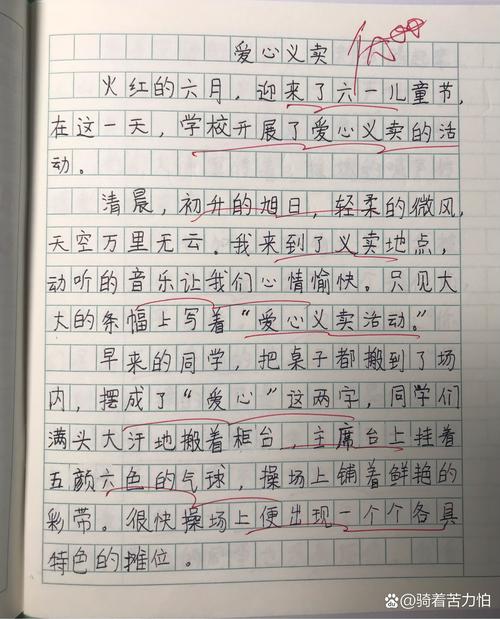 爱心义卖
火红的六月，迎来了六一儿童节，
在这一天，学校开展了爱心义卖的活
动。
清晨，初升的旭日，轻柔的微风，
天空万里无云。我来到了义卖地点，
动听的音乐让我们心情愉快。只见大
大的条幅上写着“爱心义卖活动。”
早来的同学，把桌子都搬到了场
内，摆成了“爱心”这两字，同学们
满头大汗地搬着柜台，主席台上挂着
五颜六色的气球，操场上铺着鲜艳的
彩带。很快操场上便出现一个个各具
特色的摊位。
@骑着苦力怕